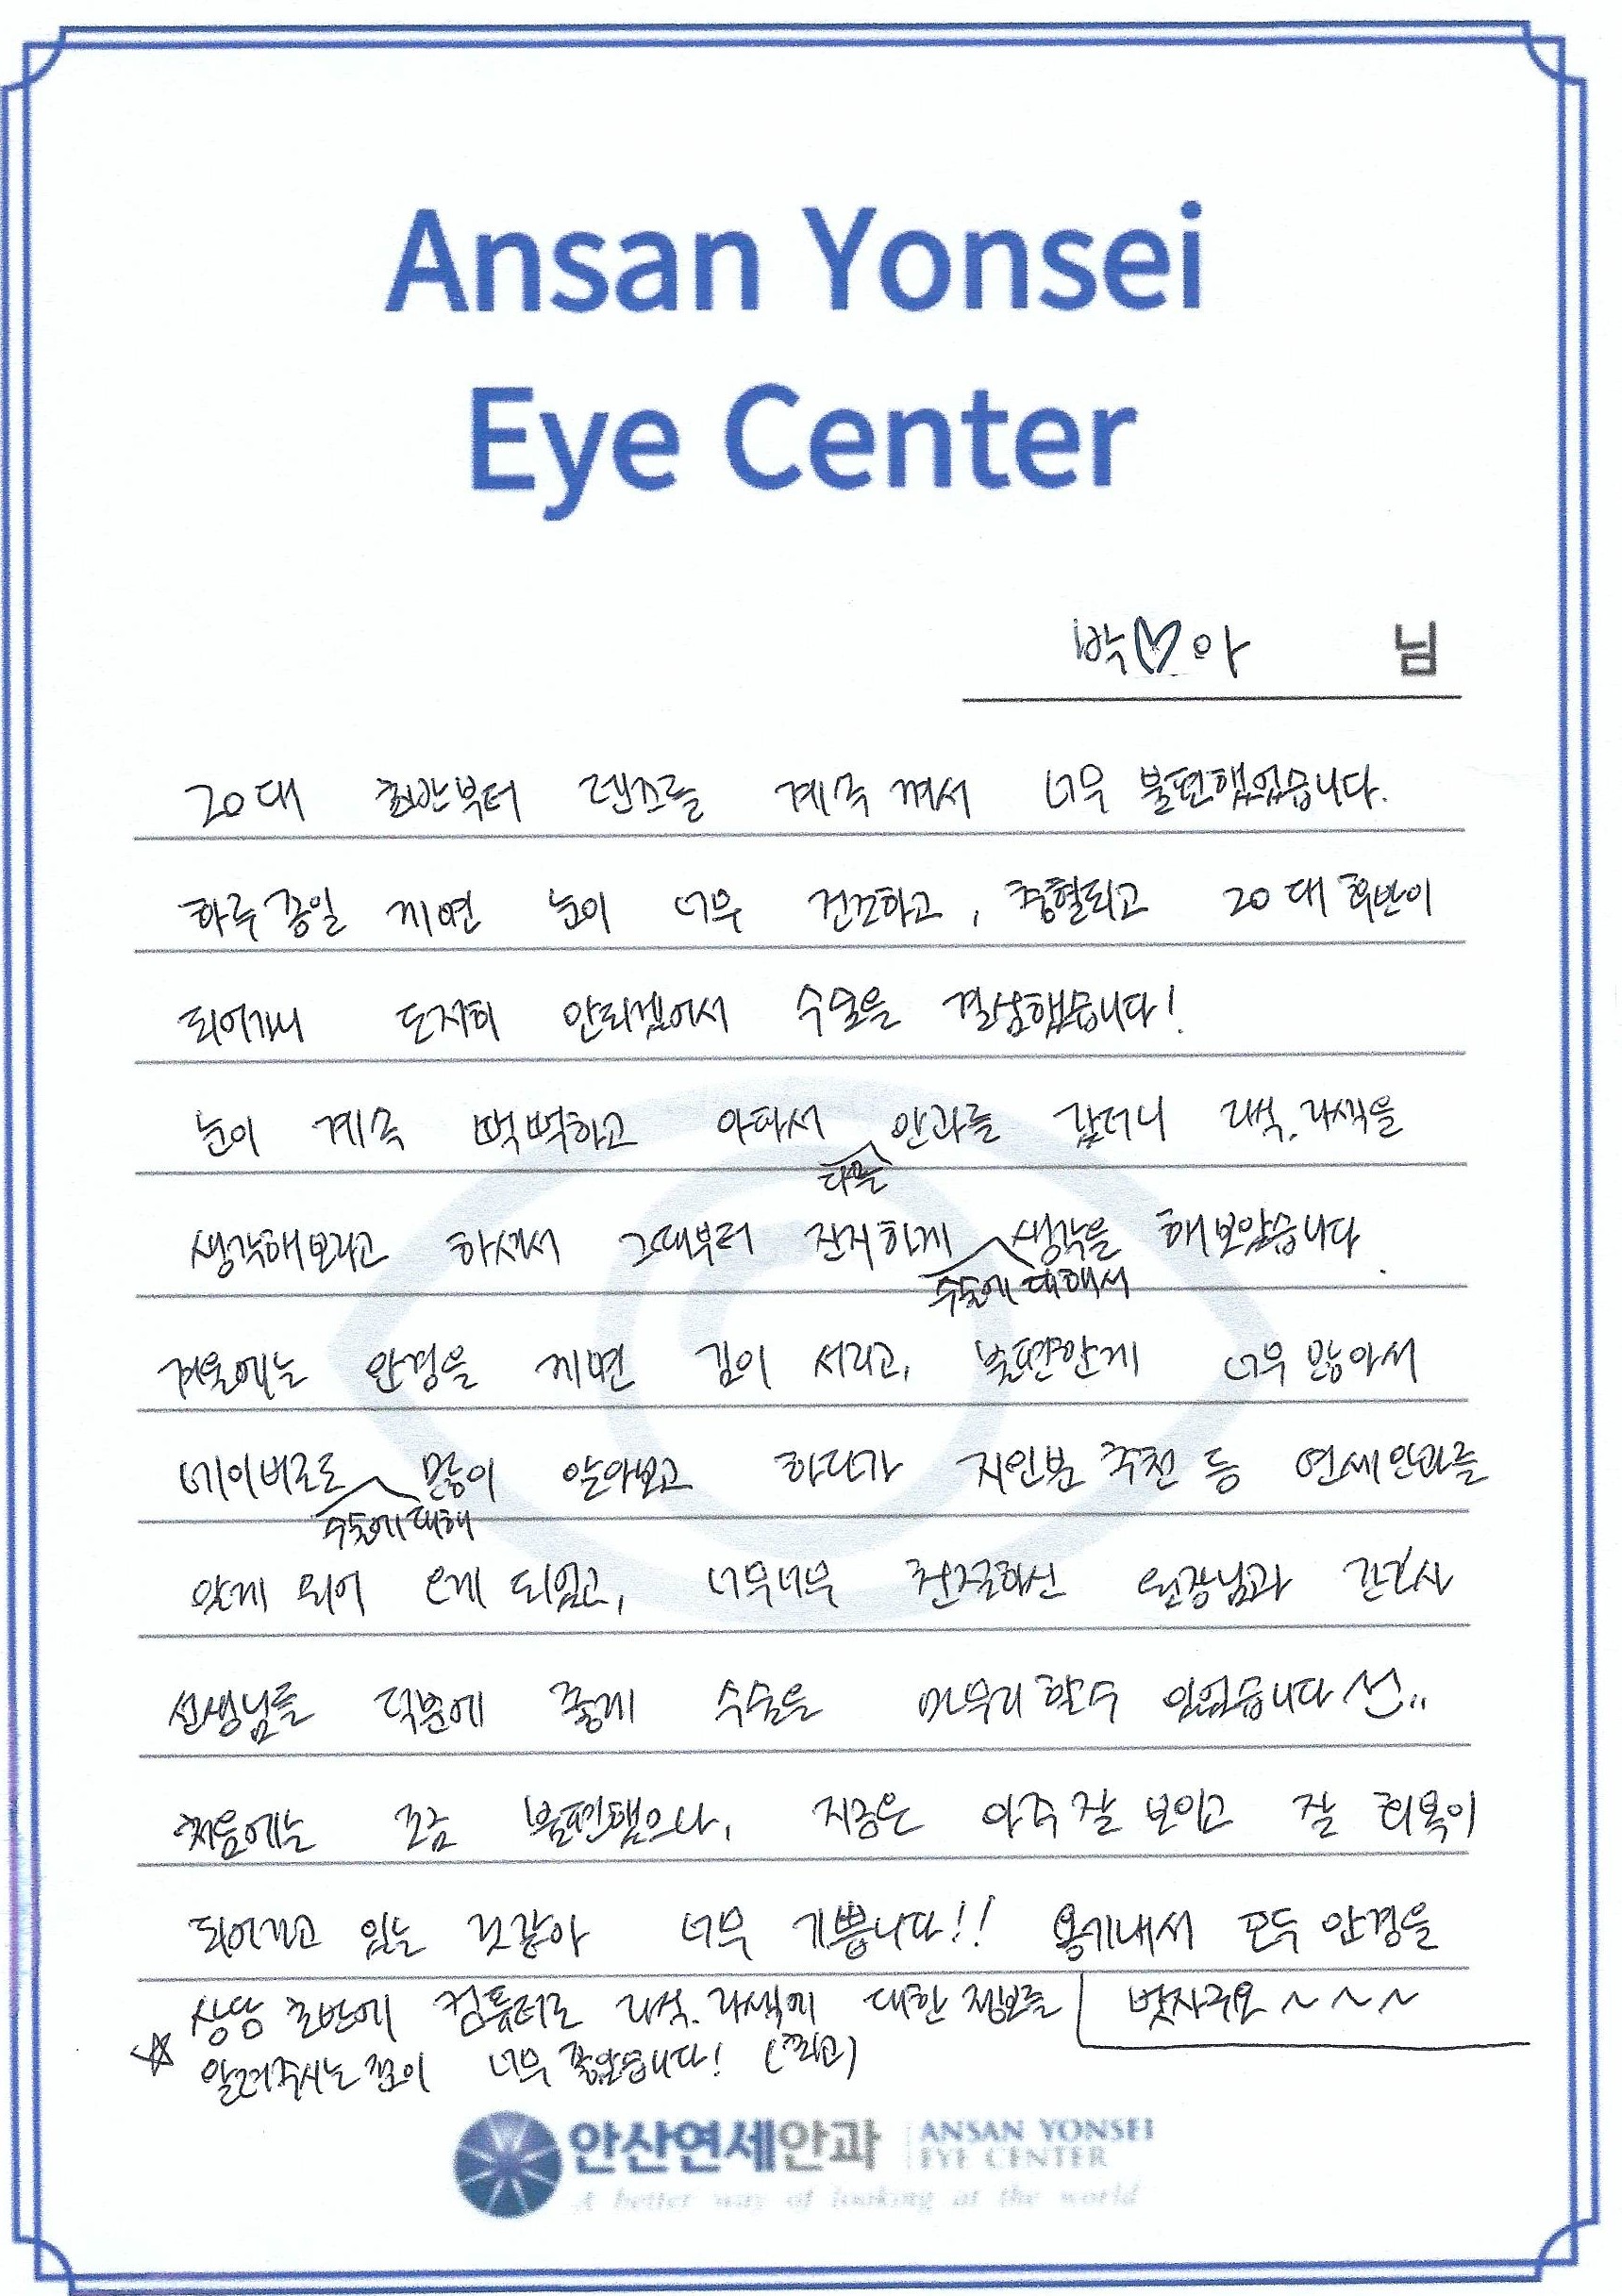 Ansan Yonsei
Eye Center
박♡아 님
20대 초반부터 렌즈를 계속 껴서 너무 불편했었습니다.
하루종일 끼면 눈이 너무 건조하고, 충혈되고 20대 후반이
되어가니 도저히 안되겠어서 수술을 결심했습니다!
눈이 계속 뻑뻑하고 아파서 안과를 갔더니 라식.라섹을
다믈
생각해보라고 하셔서 그때부터 진지하게 생각을 해보았습니다.
수술에 대해서
겨울에는 안경을 끼면 김이 서리고, 불편한게 너무 많아서
네이버로도 많이 알아보고 하다가 지인분 추천 등 연세안과를
수술에 대해
알게 되어 오게 되었고, 너무너무 친절하신 원장님과 간호사
선생님들 덕분에 좋게 수술을 마무리 할수 있었습니다
처음에는 조금 불편했으나, 지금은 아주 잘 보이고 잘 회복이
되어가고 있는 것같아 너무 기쁩니다!! 용기내서 모두 안경을
벗자구요~~~
☆ 상담 초반에 컴퓨터로 라식.라섹에 대한 정보를
알려주시는 점이 너무 좋았습니다! (최고)
안산연세안과 ANSAN YONSEI
EYE CENTER
A better way of looking at the world